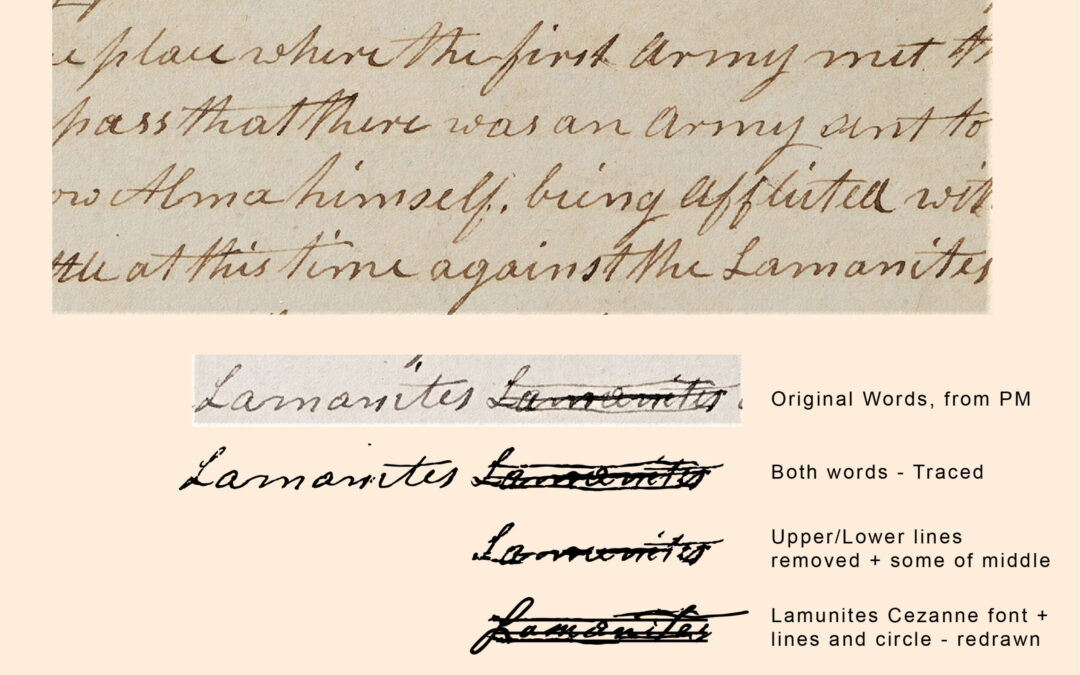 place where the first Army met th
pass that there was an Army sent to
ow Alma himself, being afflicted with
at this time against the Lamanites
Lamanites Lamanites
Original Words, from PM
Lamanites Lamanites
Both words - Traced
Lamanites
Upper/Lower lines
removed + some of middle
Lamanites
Lamunites Cezanne font +
lines and circle - redrawn